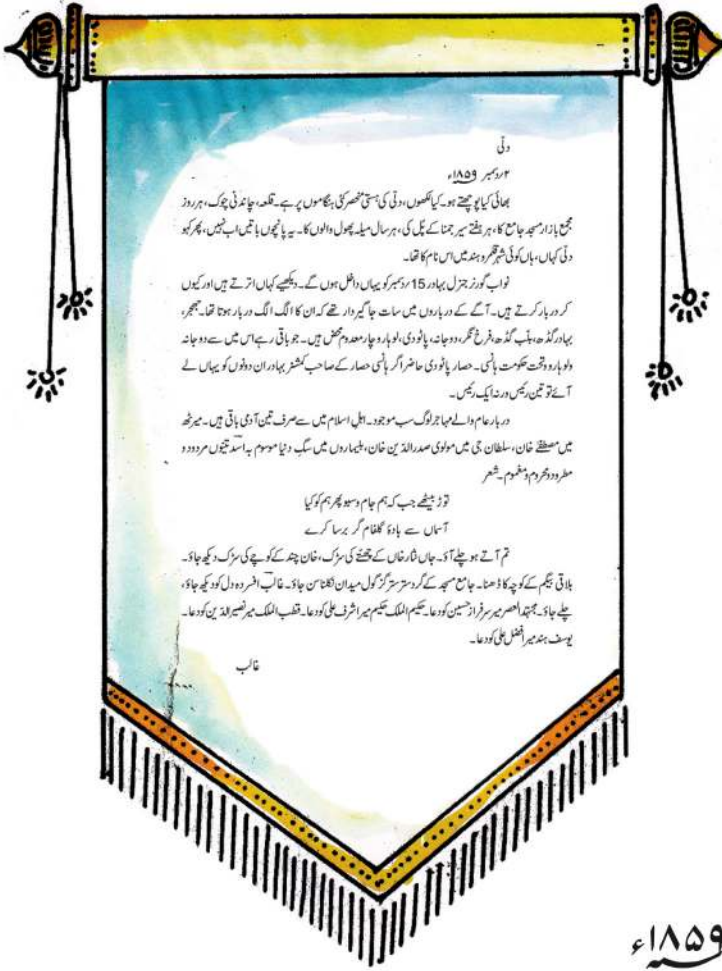 دلّی
۲؍دسمبر ۱۸۵۹ء
بھائی کیا پوچھتے ہو۔ کیا لکھوں، دلّی کی ہستی منحصر کئی ہنگاموں پر ہے۔ قلعہ، چاندنی چوک، ہر روز
مجمع بازار مسجد جامع کا، ہر ہفتے سیر جمنا کے پُل کی، ہر سال میلہ پھول والوں کا۔ یہ پانچوں باتیں اب نہیں، پھر کہو
دلّی کہاں، ہاں کوئی شہر قلمرو ہند میں اس نام کا تھا۔
نواب گورنر جنرل بہادر 15؍دسمبر کو یہاں داخل ہوں گے۔ دیکھیے کہاں اترتے ہیں اور کیوں
کر دربار کرتے ہیں۔ آگے کے درباروں میں سات جاگیردار تھے کہ ان کا الگ الگ دربار ہوتا تھا۔ جھجر،
بہادر گڈھ، بلّب گڈھ، فرخ نگر، دوجانہ، پاٹودی، لوہارو چار معدوم محض ہیں۔ جو باقی رہے اس میں سے دوجانہ
ولوہارو تحت حکومت ہانسی۔ حصار پاٹودی حاضر اگر ہانسی حصار کے صاحب کمشنر بہادر ان دونوں کو یہاں لے
آئے تو تین رئیس ورنہ ایک رئیس۔
دربار عام والے مہاجر لوگ سب موجود۔ اہلِ اسلام میں سے صرف تین آدمی باقی ہیں۔ میرٹھ
میں مصطفےٰ خان، سلطان جی میں مولوی صدرالدّین خان، بلیماروں میں سگِ دنیا موسوم بہ اسدؔ تینوں مردود و
مطرود و محروم و مغموم۔ شعر
توڑ بیٹھے جب کہ ہم جام و سبو پھر ہم کو کیا
آسماں سے بادۂ گلفام گر برسا کرے
تم آتے ہو چلے آؤ۔ جاں نثار خاں کے چھتّے کی سڑک، خان چند کے کوچے کی سڑک دیکھ جاؤ۔
بلاقی بیگم کے کوچہ کا ڈھنا۔ جامع مسجد کے گرد ستر ستر گز گول میدان نکلنا سن جاؤ۔ غالبؔ افسردہ دل کو دیکھ جاؤ،
چلے جاؤ۔ مجتہدالعصر میر سرفراز حسین کو دعا۔ حکیم الملک حکیم میر اشرف علی کو دعا۔ قطب الملک میر نصیرالدّین کو دعا۔
یوسف ہند میر افضل علی کو دعا۔
غالب
۱۸۵۹ء